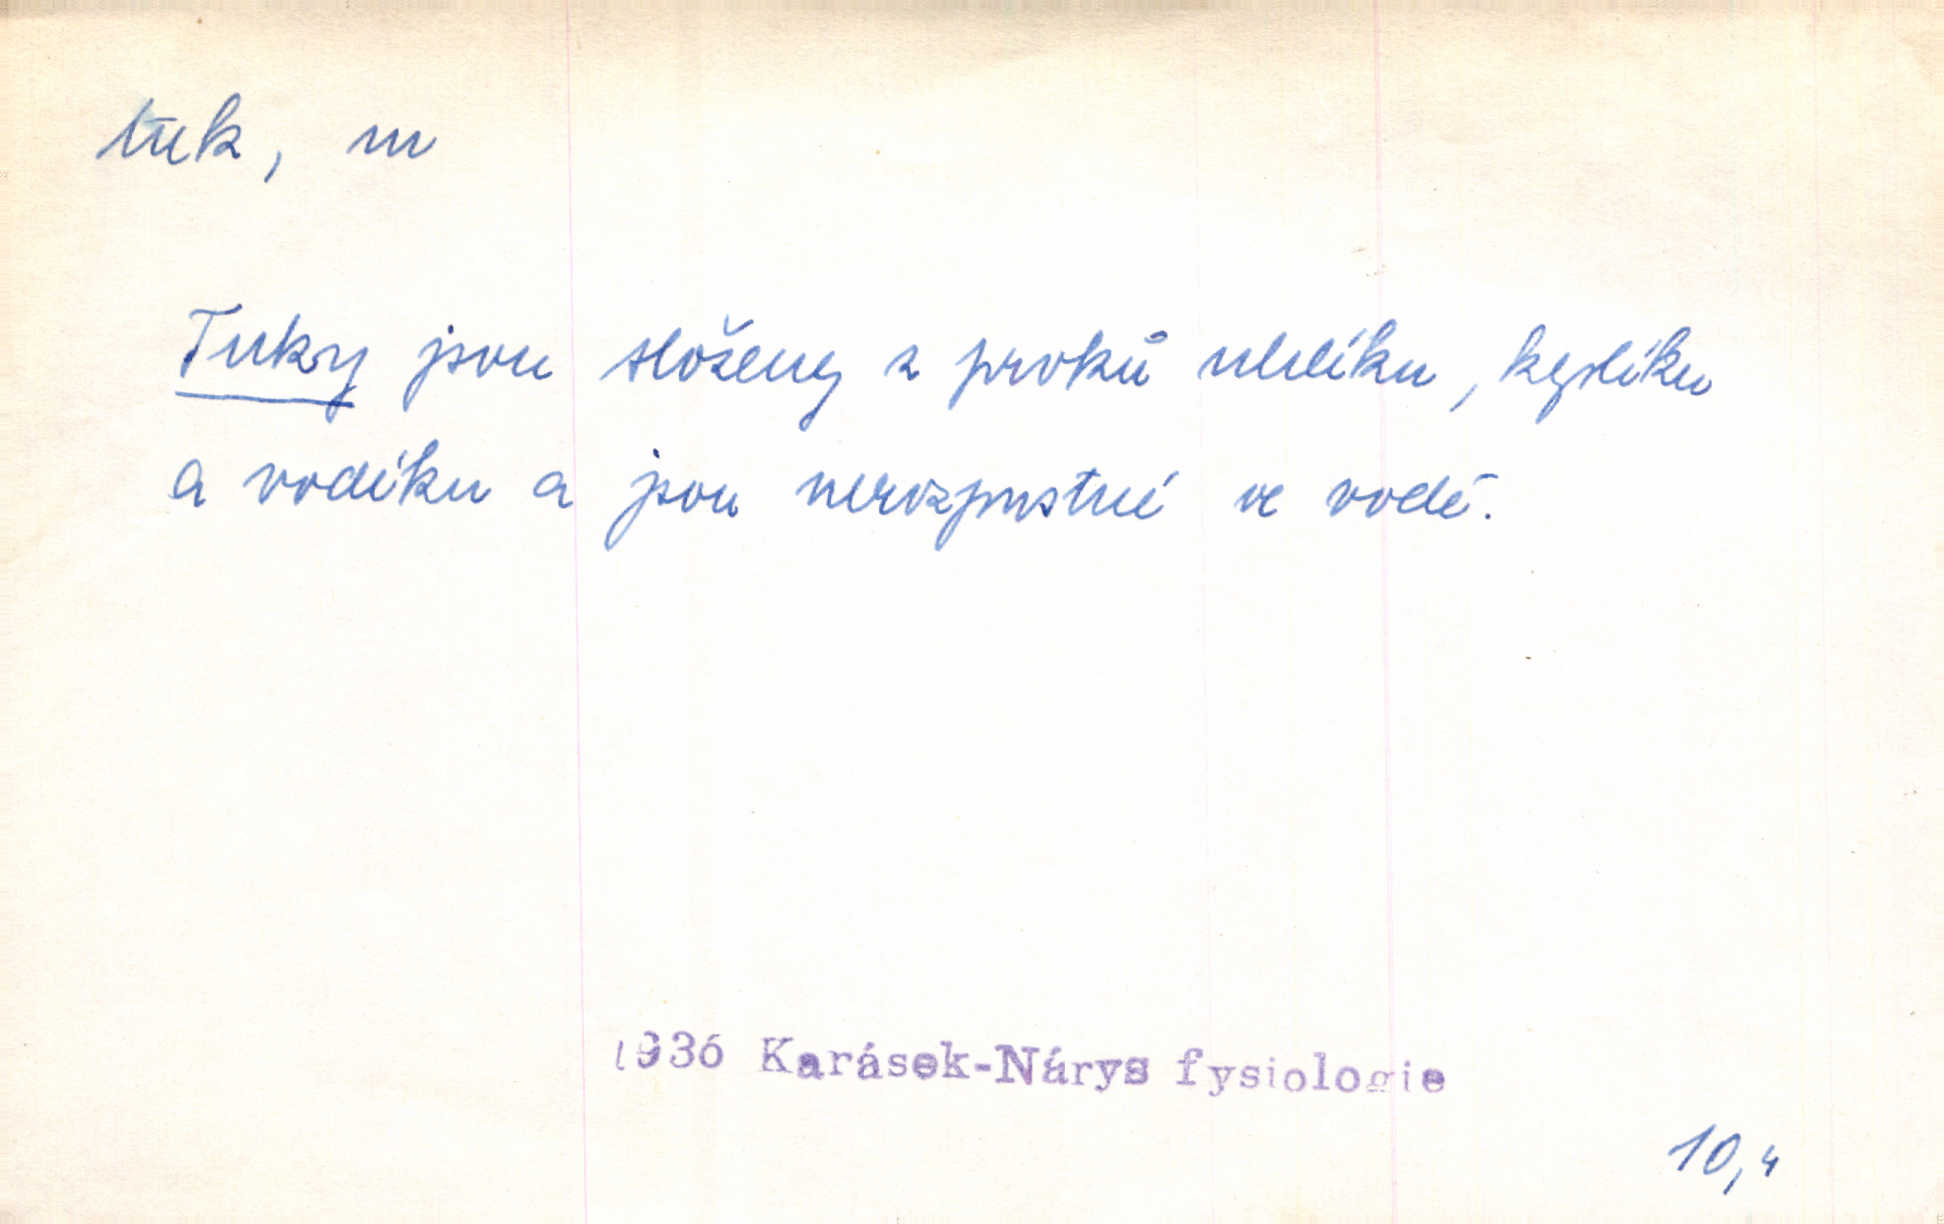 tuk, m
Tuky jsou složeny z prvků uhlíku, kyslíku
a vodíku a jsou nerozpustné ve vodě.
1936 Karásek-Nárys fysiologie
10,4